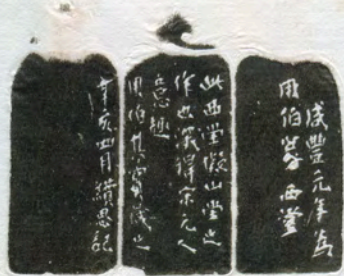 咸豐元年為
用伯 西堂
此西堂擬山堂之
作也深得宋元人
意趣
用伯其寶藏之
辛亥四月 記